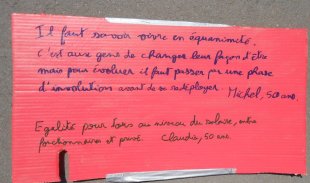 Il faut savoir vivre en équanimité.
C'est aux gens de changer leur façon d'être
mais pour évoluer il faut passer par une phase
d'involution avant de se redéployer. Michel, 50 ans.
Egalité pour tous au niveau du salaire, entre
fonctionnaires et privé. Claudie, 50 ans.